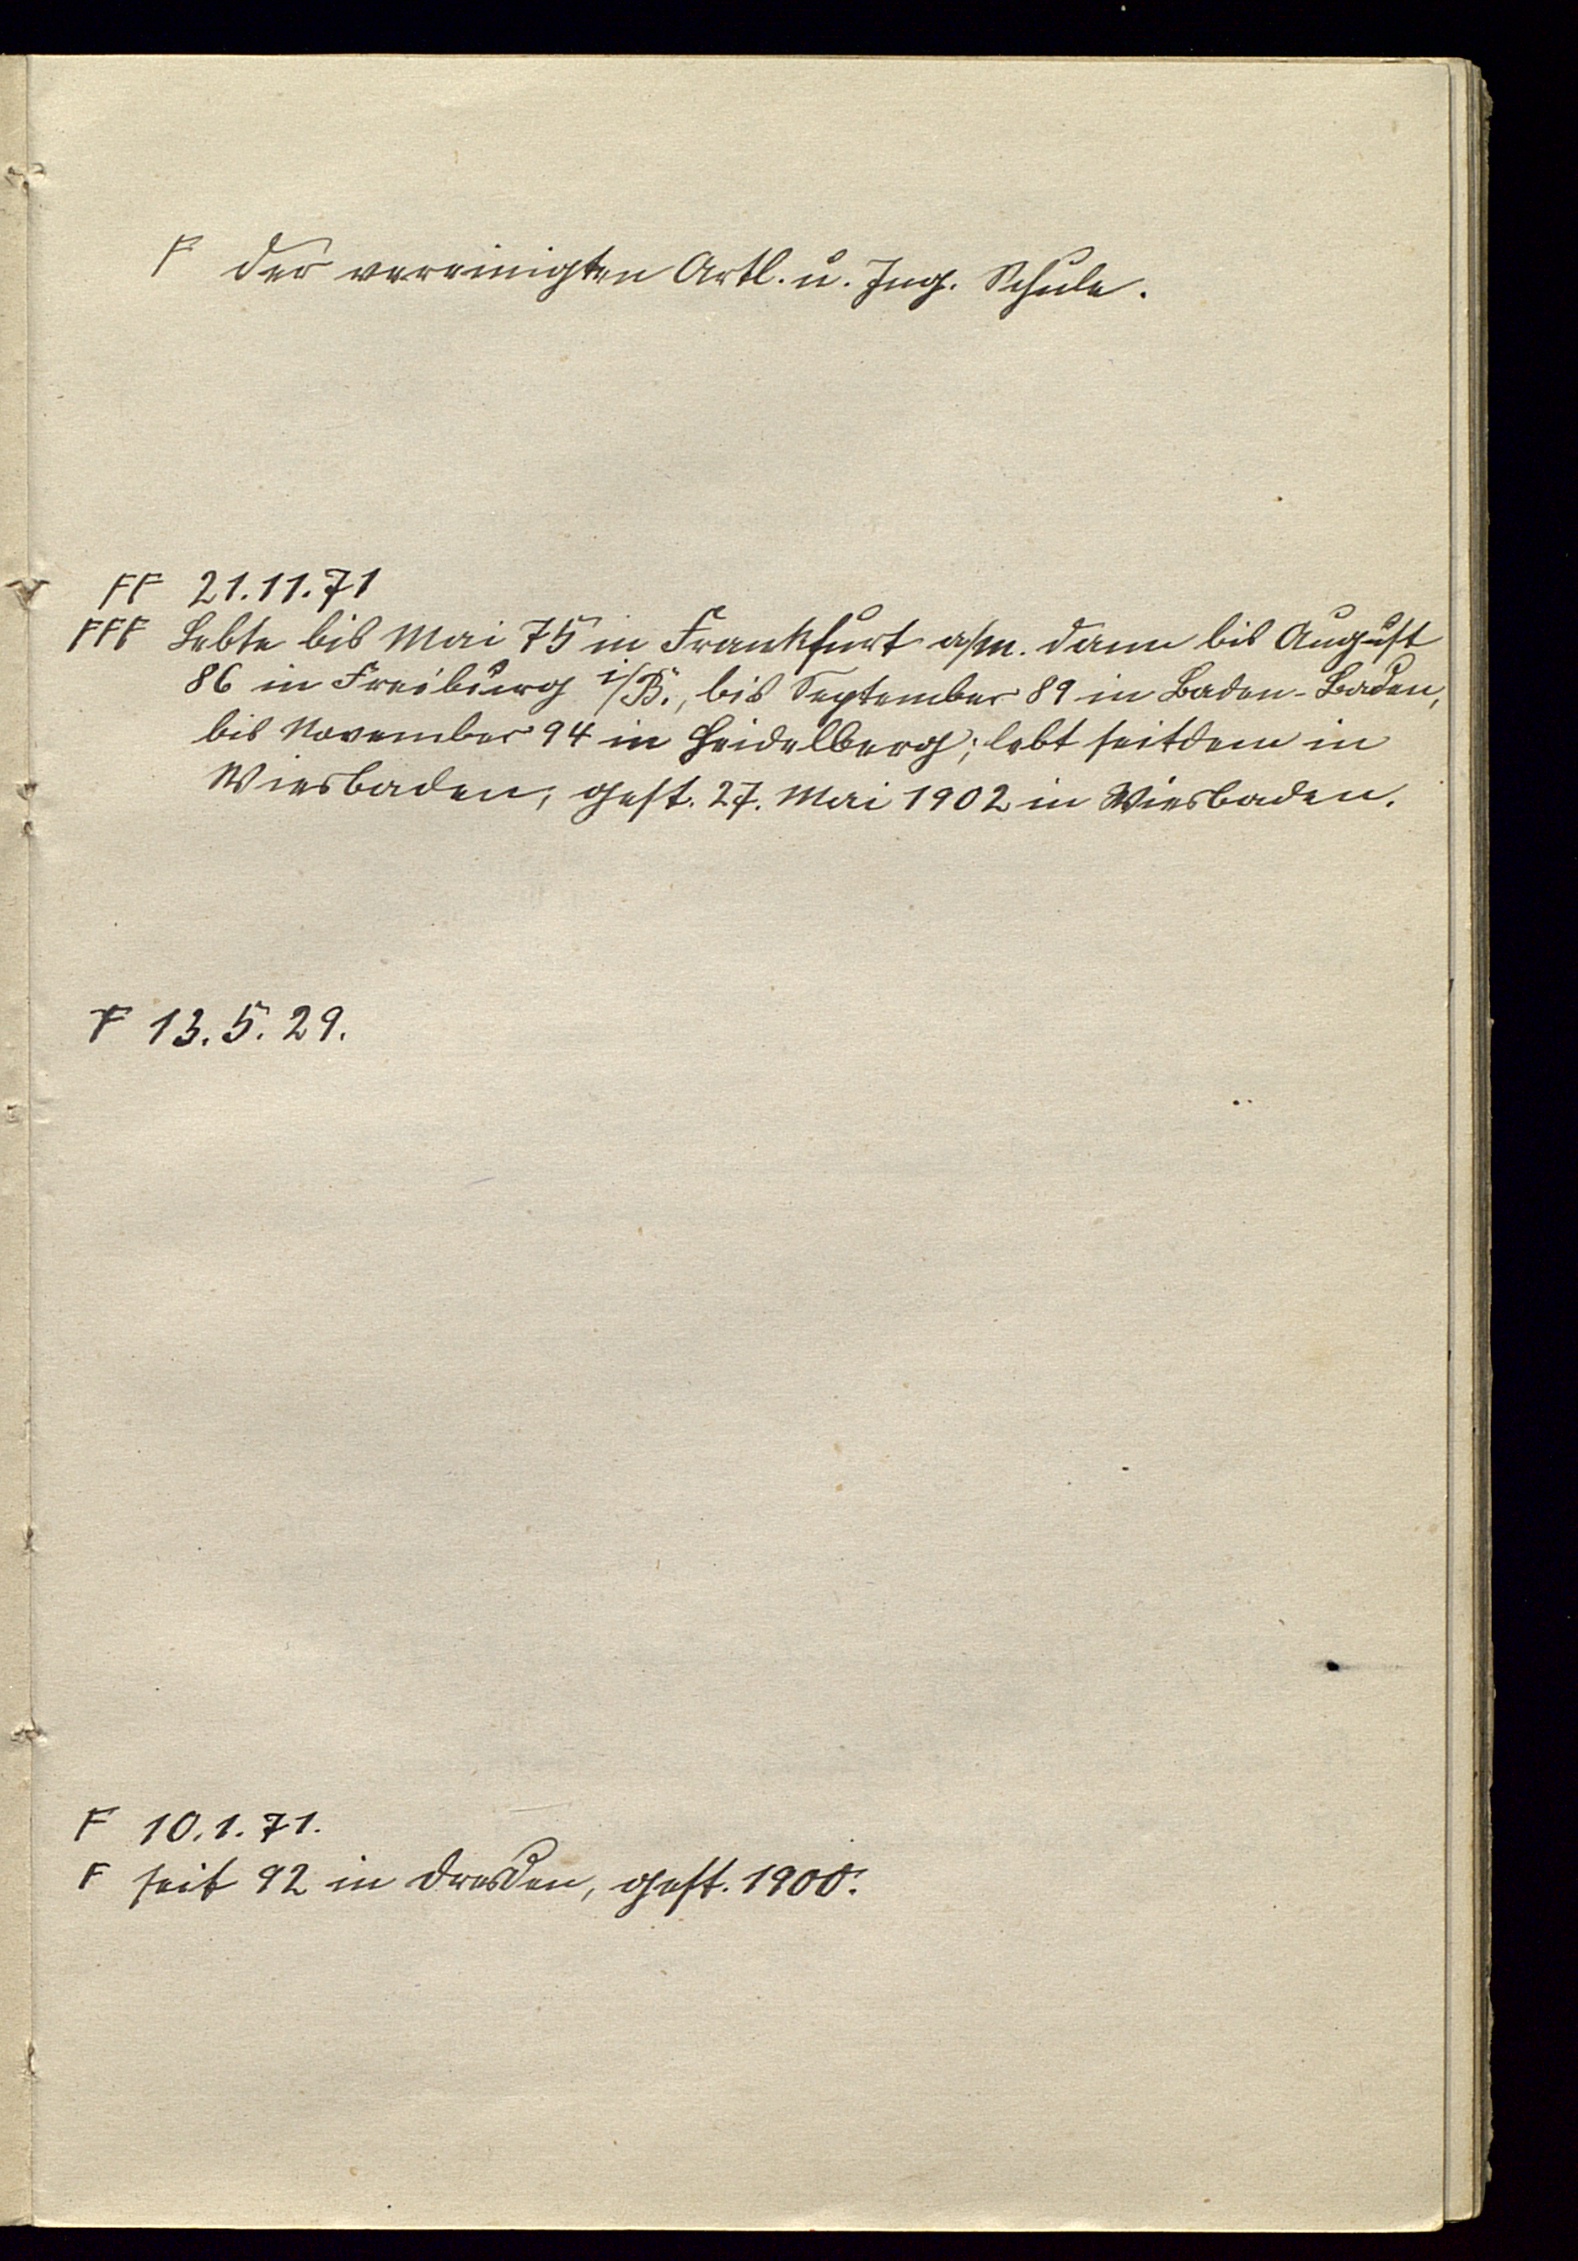 F der vereinigten Artl. u. Ing. Schule.
FF 21.11.71
FFF Lebte bis Mai 75 in Frankfurt a/M. dann bis August
86 in Freiburg i/B., bis September 89 in Baden-Baden,
bis November 94 in Heidelberg; lebt seitdem in
Wiesbaden, gest. 27. Mai 1902 in Wiesbaden.
F 13.5.29.
F 10.1.71.
F seit 92 in Dresden, gest. 1900.